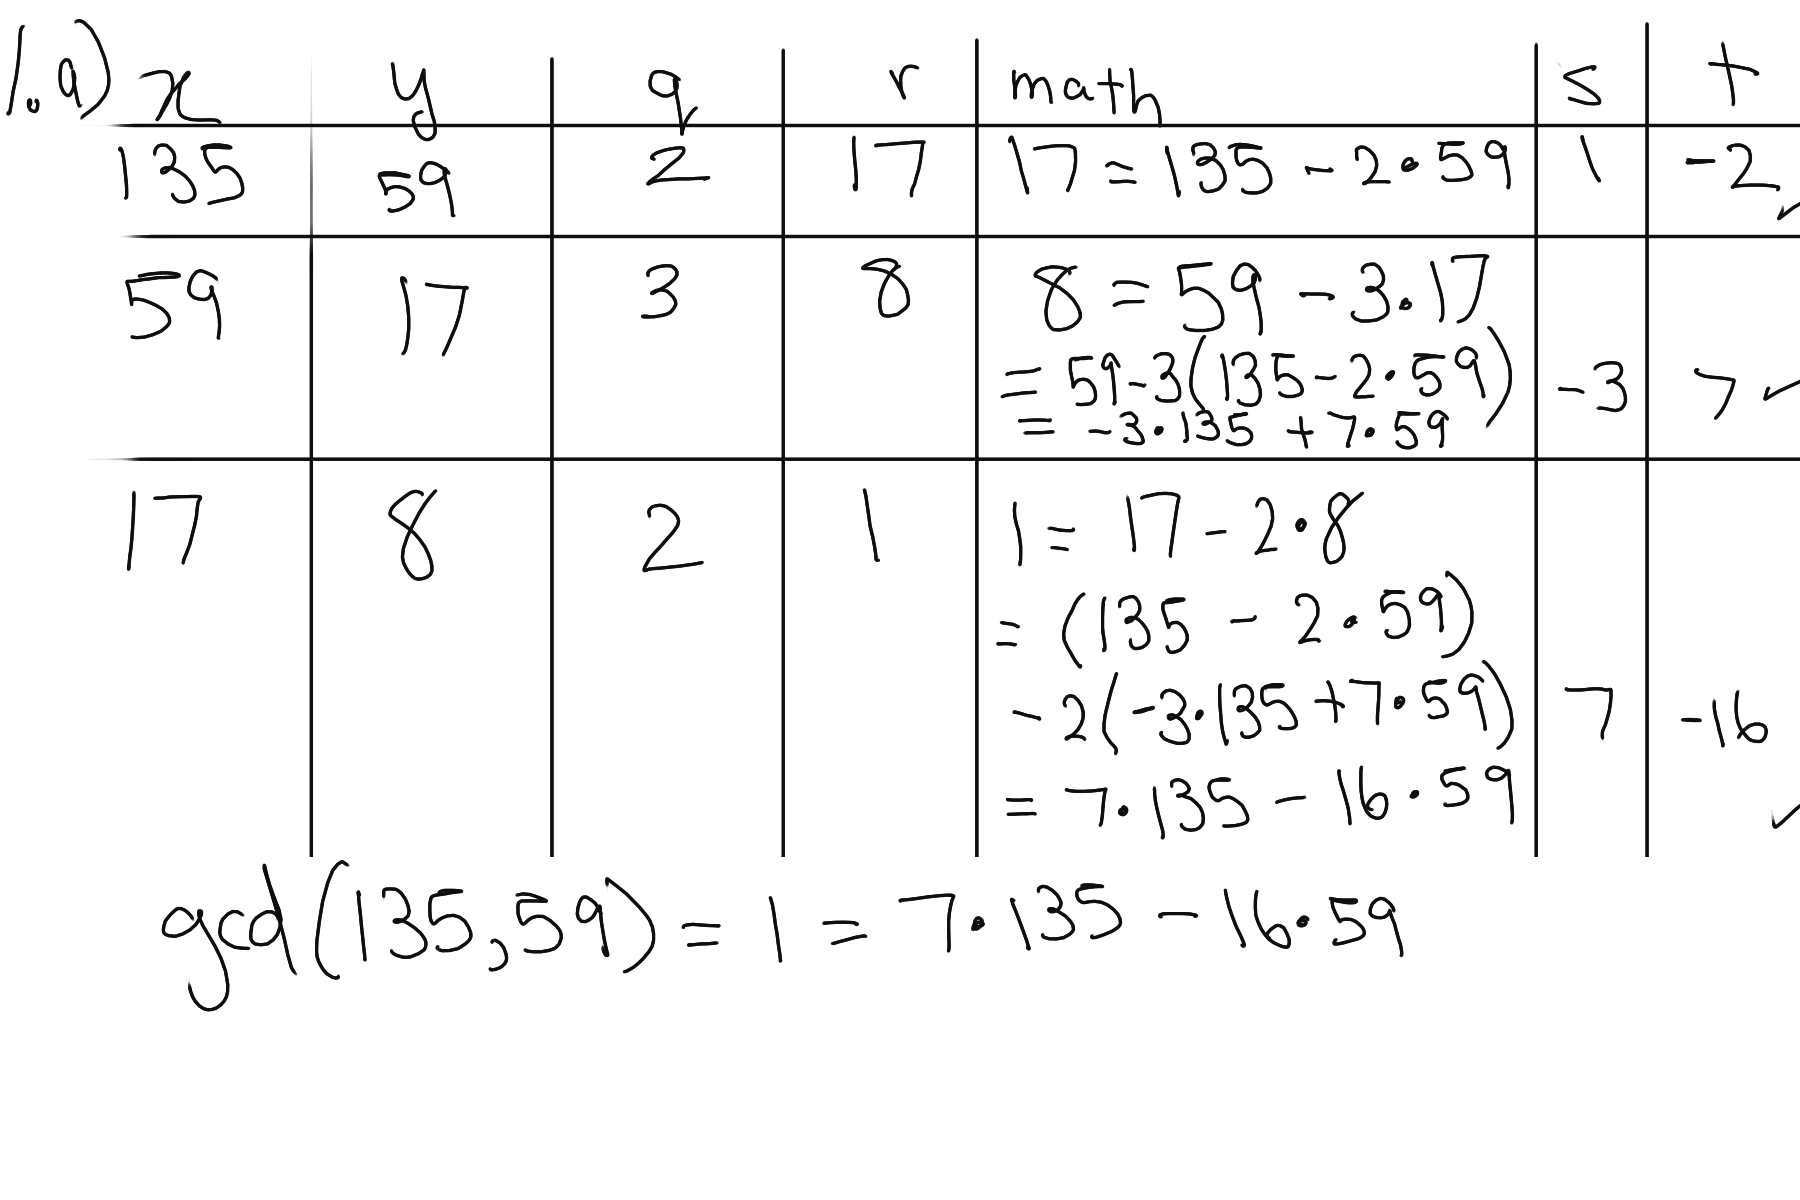 1.a) x y q r math s t
135 59 2 17 17 = 135 - 2·59 1 -2 ✓
59 17 3 8 8 = 59 - 3·17
= 59-3(135-2·59) -3 7 ✓
= -3·135 + 7·59
17 8 2 1 1 = 17 - 2·8
= (135 - 2·59)
- 2(-3·135+7·59) 7 -16
= 7·135 - 16·59 ✓
gcd(135,59) = 1 = 7·135 - 16·59